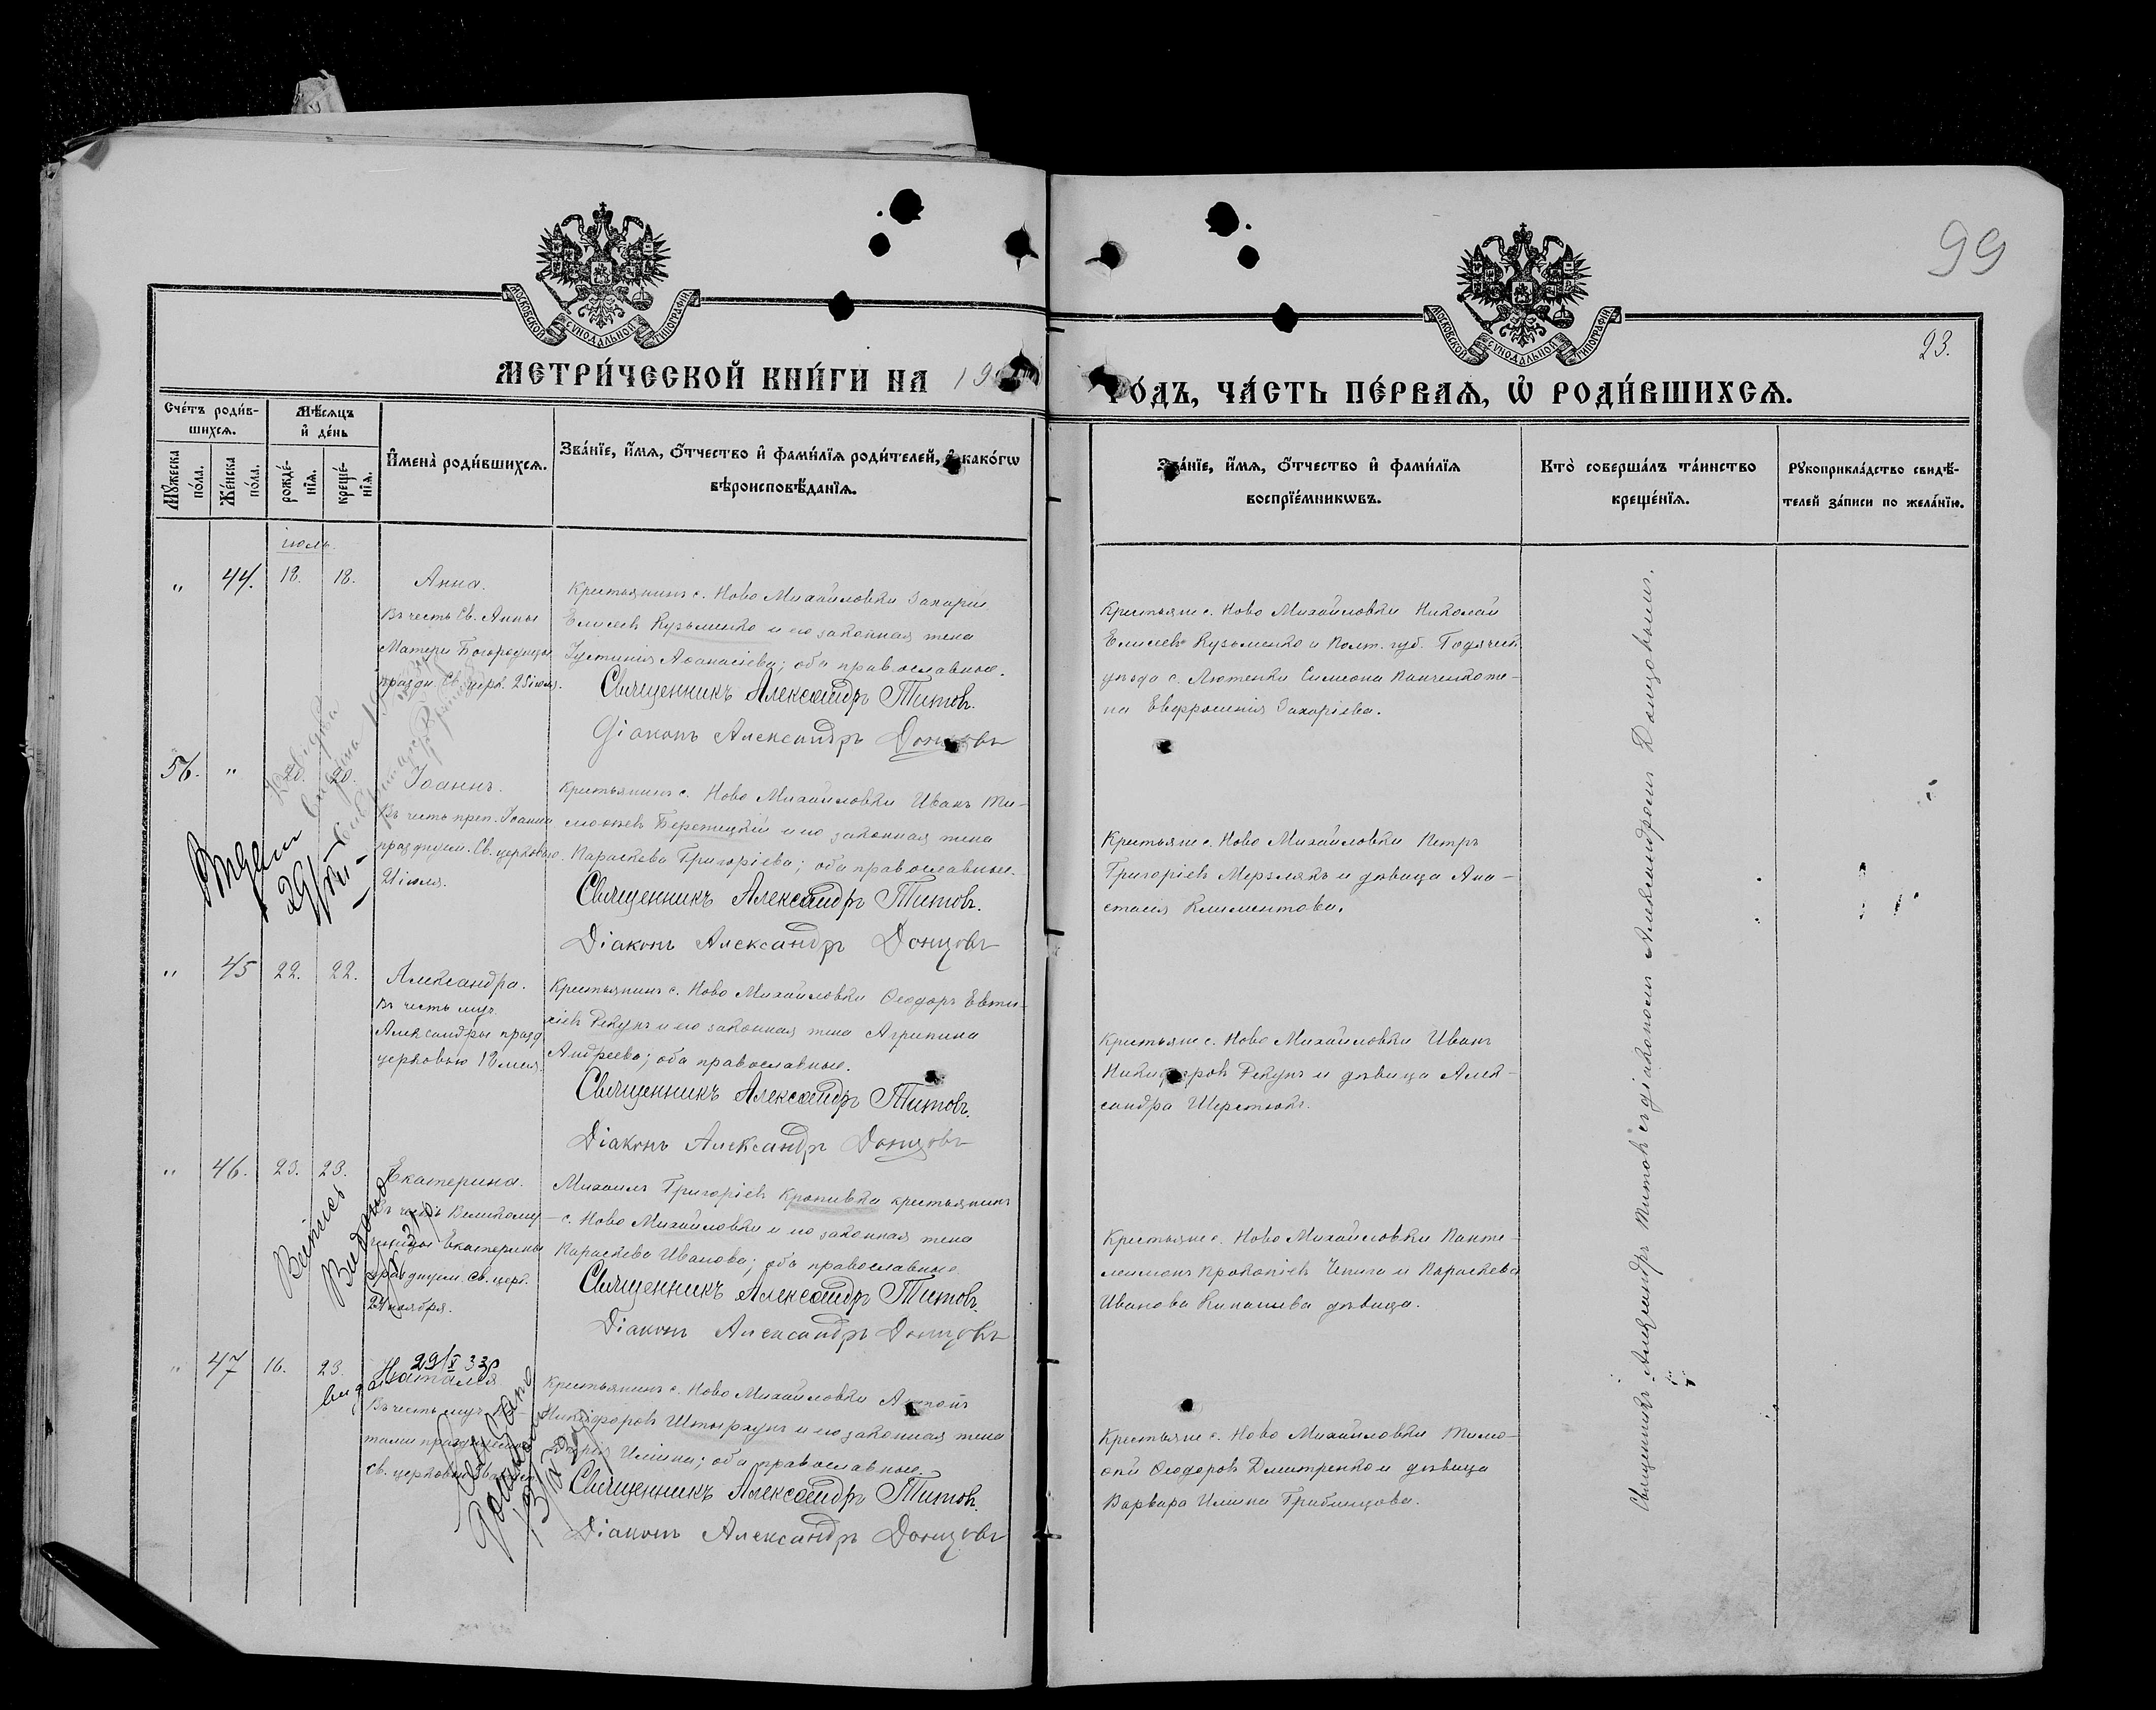 99
23.
МОСКОВСКОЙ СѴНОДАЛЬНОЙ ТИПОГРАФІИ
МОСКОВСКОЙ СѴНОДАЛЬНОЙ ТИПОГРАФІИ
МЕТРИ́ЧЕСКОЙ КНИ́ГИ НА 19
ГО́ДЪ, ЧА́СТЬ ПЕ́РВАѦ, Ѡ҆ РОДИ́ВШИХСѦ.
Сче́тъ роди́в-
шихсѧ.
Мѣ́сѧцъ
и҆ де́нь
Мꙋ́жеска
по́ла.
Же́нска
по́ла.
рожде́-
нїѧ.
креще́-
нїѧ.
И҆мена̀ роди́вшихсѧ.
Зва́нїе, и҆́мѧ, ѻ҆́тчество и҆ фами́лїѧ роди́телей, и҆ како́гѡ
вѣроисповѣ́данїѧ.
Зва́нїе, и҆́мѧ, ѻ҆́тчество и҆ фами́лїѧ
воспрїе́мникѡвъ.
Кто̀ соверша́лъ та́инство
креще́нїѧ.
Рꙋкоприкла́дство свидѣ́-
телей за́писи по жела́нїю.
іюль.
" 44. 18. 18.
Анна.
Въ честь Св. Анны
Матери Богородицы
праздн. Св. церк. 25 іюля.
Крестьянинъ с. Ново Михайловки Захарій
Елисеевъ Кузьменко и его законная жена
Іустинія Аѳанасіева; оба православные.
Священникъ Александръ Титовъ.
Діаконъ Александръ Донцовъ
Крестьяне с. Ново Михайловки Николай
Елисеевъ Кузьменко и Полт. губ. Гадячск.
уѣзда с. Лютенки Симеона Панченко же-
на Евфросинія Захаріева.
56. " 20. 20.
Іоаннъ.
Въ честь преп. Іоанна
празднуем. Св. церковью
21 іюля.
Крестьянинъ с. Ново Михайловки Иванъ Ти-
моѳеевъ Бережецкій и его законная жена
Параскева Григоріева; оба православные.
Священникъ Александръ Титовъ.
Діаконъ Александръ Донцовъ
Крестьяне с. Ново Михайловки Петръ
Григоріевъ Мерзлякъ и дѣвица Ана-
стасія Климентова.
29/VII
" 45 22. 22.
Александра.
Въ честь муч.
Александры празд.
церковью 18 мая.
Крестьянинъ с. Ново Михайловки Ѳеодоръ Евти-
хіевъ Рекунъ и его законная жена Агрипина
Андреева; оба православные.
Священникъ Александръ Титовъ.
Діаконъ Александръ Донцовъ
Крестьяне с. Ново Михайловки Иванъ
Никифоровъ Рекунъ и дѣвица Алек-
сандра Шерстюкъ.
" 46. 23. 23.
Екатерина.
Въ честь Великому-
ченицы Екатерины
празднуем. Св. церк.
24 ноября.
Михаилъ Григоріевъ Кропивка крестьянинъ
с. Ново Михайловки и его законная жена
Параскева Иванова; оба православные.
Священникъ Александръ Титовъ.
Діаконъ Александръ Донцовъ
Крестьяне с. Ново Михайловки Панте-
леимонъ Прокопіевъ Чепига и Параскева
Иванова дѣвица.
Видано
29/X 33р
" 47 16. 23.
Наталія
Въ честь муч. На-
таліи празднуемой
Св. церковью
Крестьянинъ с. Ново Михайловки Антонъ
Никифоровъ Штыркунъ и его законная жена
Илiина; оба православные.
Священникъ Александръ Титовъ.
Діаконъ Александръ Донцовъ
Крестьяне с. Ново Михайловки Тимо-
ѳей Ѳеодоровъ Дмитренко и дѣвица
Варвара Ильина Грибенцова.
Священникъ Александръ Титовъ съ діакономъ Александромъ Донцовымъ.